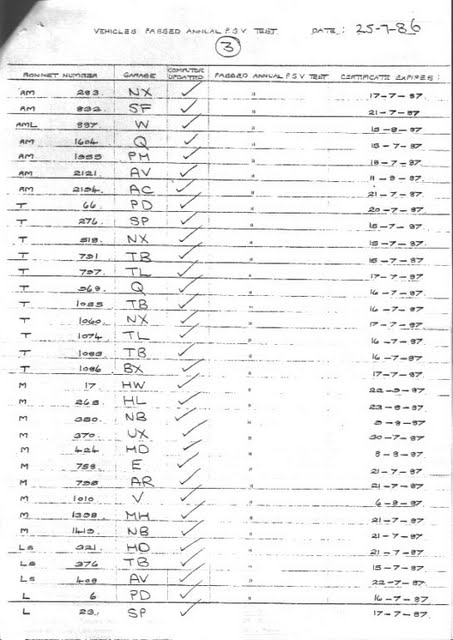 VEHICLES PASSED ANNUAL P.S.V. TEST. DATE: 25-7-86
3
BONNET NUMBER GARAGE COMPUTER UPDATED PASSED ANNUAL P.S.V TEST CERTIFICATE EXPIRES:
RM 283 NX ✓ " 17-7-87
RM 832 SF ✓ " 21-7-87
RML 887 W ✓ " 15-8-87
RM 1604 Q ✓ " 15-7-87
RM PM ✓ " 18-7-87
RM 2121 AV ✓ " 11-8-87
RM AC ✓ " 21-7-87
T 66 PD ✓ " 20-7-87
T 276 SP ✓ " 15-7-87
T 519 NX ✓ " 15-7-87
T 731 TB ✓ " 15-7-87
T 797 TL ✓ " 17-7-87
T Q ✓ " 16-7-87
T 1055 TB ✓ " 16-7-87
T 1060 NX ✓ " 17-7-87
T 1074 TL ✓ " 16-7-87
T TB ✓ " 16-7-87
T 1096 BX ✓ " 17-7-87
M 17 HW ✓ " 22-9-87
M 265 HL ✓ " 23-8-87
M 350 NB ✓ " 9-8-87
M 370 UX ✓ " 30-7-87
M 424 HD ✓ " 8-8-87
M 759 E ✓ " 21-7-87
M 798 AR ✓ " 21-7-87
M 1010 V ✓ " 6-8-87
M 1398 MH ✓ " 21-7-87
M 1413 NB ✓ " 21-7-87
LS 321 HD ✓ " 21-7-87
LS 376 TB ✓ " 15-7-87
LS 409 AV ✓ " 22-7-87
L 6 PD ✓ " 16-7-87
L 23 SP ✓ " 17-7-87